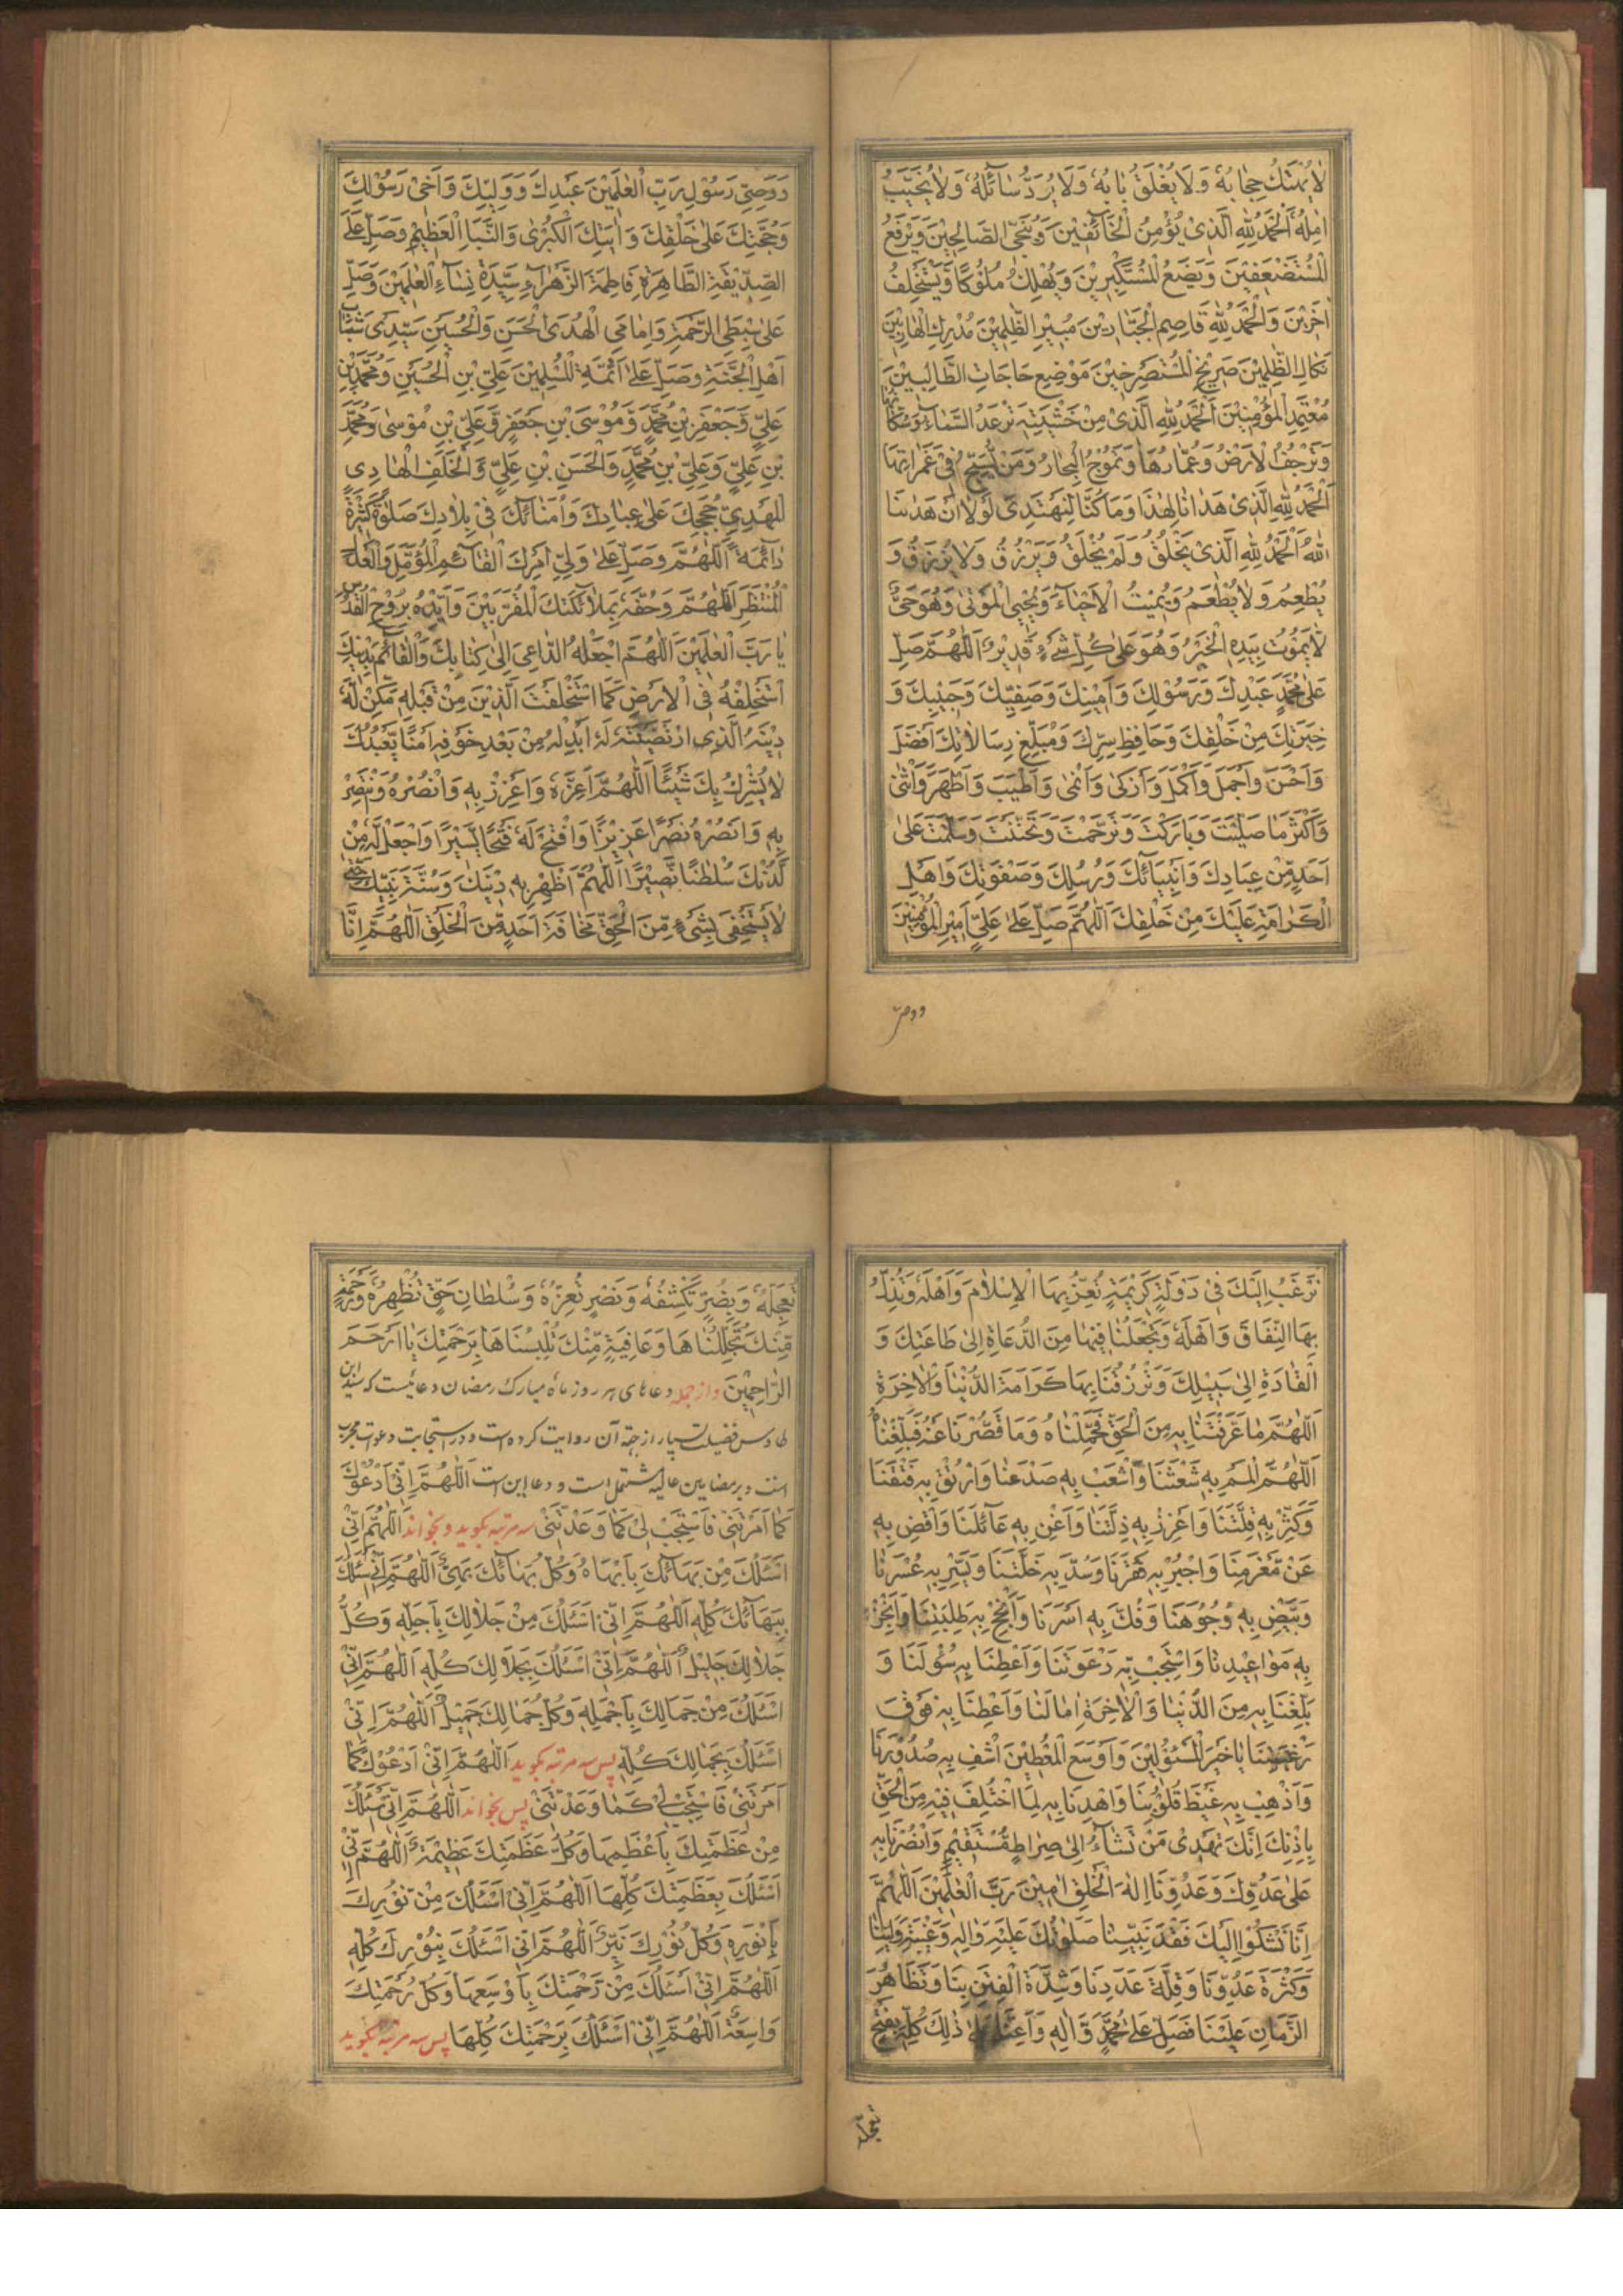 لَا يُهْتَكُ حِجَابُهُ وَلَا يُغْلَقُ بَابُهُ وَلَا يُرَدُّ سَآئِلُهُ وَلَا يُخَيَّبُ
اٰمِلُهُ اَلْحَمْدُ لِلّٰهِ الَّذِىْ يُؤْمِنُ الْخَآئِفِيْنَ وَيُنَجِّى الصَّالِحِيْنَ وَيَرْفَعُ
الْمُسْتَضْعَفِيْنَ وَيَضَعُ الْمُسْتَكْبِرِيْنَ وَيُهْلِكُ مُلُوْكًا وَيَسْتَخْلِفُ
اٰخَرِيْنَ وَالْحَمْدُ لِلّٰهِ قَاصِمِ الْجَبَّارِيْنَ مُبِيْرِ الظّٰلِمِيْنَ مُدْرِكِ الْهَارِبِيْنَ
نَكَالِ الظّٰلِمِيْنَ صَرِيْخِ الْمُسْتَصْرِخِيْنَ مَوْضِعِ حَاجَاتِ الطَّالِبِيْنَ
مُعْتَمَدِ الْمُؤْمِنِيْنَ اَلْحَمْدُ لِلّٰهِ الَّذِىْ مِنْ خَشْيَتِهِ تَرْعَدُ السَّمَآءُ وَسُكَّانُهَا
وَتَرْجُفُ الْاَرْضُ وَعُمَّارُهَا وَتَمُوْجُ الْبِحَارُ وَمَنْ يُسَبِّحُ فِىْ غَمَرَاتِهَا
اَلْحَمْدُ لِلّٰهِ الَّذِىْ هَدَانَا لِهٰذَا وَمَا كُنَّا لِنَهْتَدِىَ لَوْلَا اَنْ هَدٰىنَا
اللّٰهُ اَلْحَمْدُ لِلّٰهِ الَّذِىْ يَخْلُقُ وَلَمْ يُخْلَقْ وَيَرْزُقُ وَلَا يُرْزَقُ وَ
يُطْعِمُ وَلَا يُطْعَمُ وَيُمِيْتُ الْاَحْيَآءَ وَيُحْيِى الْمَوْتٰى وَهُوَ حَىٌّ
لَّا يَمُوْتُ بِيَدِهِ الْخَيْرُ وَهُوَ عَلٰى كُلِّ شَىْءٍ قَدِيْرٌ اَللّٰهُمَّ صَلِّ
عَلٰى مُحَمَّدٍ عَبْدِكَ وَرَسُوْلِكَ وَاَمِيْنِكَ وَصَفِيِّكَ وَحَبِيْبِكَ وَ
خِيَرَتِكَ مِنْ خَلْقِكَ وَحَافِظِ سِرِّكَ وَمُبَلِّغِ رِسَالَاتِكَ اَفْضَلَ
وَاَحْسَنَ وَاَجْمَلَ وَاَكْمَلَ وَاَزْكٰى وَاَنْمٰى وَاَطْيَبَ وَاَطْهَرَ وَاَسْنٰى
وَاَكْثَرَ مَا صَلَّيْتَ وَبَارَكْتَ وَتَرَحَّمْتَ وَتَحَنَّنْتَ وَسَلَّمْتَ عَلٰى
اَحَدٍ مِّنْ عِبَادِكَ وَاَنْبِيَآئِكَ وَرُسُلِكَ وَصَفْوَتِكَ وَاَهْلِ
الْكَرَامَةِ عَلَيْكَ مِنْ خَلْقِكَ اَللّٰهُمَّ صَلِّ عَلٰى عَلِىٍّ اَمِيْرِ الْمُؤْمِنِيْنَ
ووصى
وَوَصِىِّ رَسُوْلِ رَبِّ الْعٰلَمِيْنَ عَبْدِكَ وَوَلِيِّكَ وَاَخِىْ رَسُوْلِكَ
وَحُجَّتِكَ عَلٰى خَلْقِكَ وَاٰيَتِكَ الْكُبْرٰى وَالنَّبَاِ الْعَظِيْمِ وَصَلِّ عَلَى
الصِّدِّيْقَةِ الطَّاهِرَةِ فَاطِمَةَ الزَّهْرَآءِ سَيِّدَةِ نِسَآءِ الْعٰلَمِيْنَ وَصَلِّ
عَلٰى سِبْطَىِ الرَّحْمَةِ وَاِمَامَىِ الْهُدَى الْحَسَنِ وَالْحُسَيْنِ سَيِّدَىْ شَبَابِ
اَهْلِ الْجَنَّةِ وَصَلِّ عَلٰى اَئِمَّةِ الْمُسْلِمِيْنَ عَلِىِّ بْنِ الْحُسَيْنِ وَمُحَمَّدِ بْنِ
عَلِىٍّ وَجَعْفَرِ بْنِ مُحَمَّدٍ وَمُوْسَى بْنِ جَعْفَرٍ وَعَلِىِّ بْنِ مُوْسٰى وَمُحَمَّدِ
بْنِ عَلِىٍّ وَعَلِىِّ بْنِ مُحَمَّدٍ وَالْحَسَنِ بْنِ عَلِىٍّ وَالْخَلَفِ الْهَادِى
الْمَهْدِىِّ حُجَجِكَ عَلٰى عِبَادِكَ وَاُمَنَآئِكَ فِىْ بِلَادِكَ صَلٰوةً كَثِيْرَةً
دَآئِمَةً اَللّٰهُمَّ وَصَلِّ عَلٰى وَلِىِّ اَمْرِكَ الْقَآئِمِ الْمُؤَمَّلِ وَالْعَدْلِ
الْمُنْتَظَرِ اَللّٰهُمَّ وَحُفَّهُ بِمَلٰآئِكَتِكَ الْمُقَرَّبِيْنَ وَاَيِّدْهُ بِرُوْحِ الْقُدُسِ
يَا رَبَّ الْعٰلَمِيْنَ اَللّٰهُمَّ اجْعَلْهُ الدَّاعِىَ اِلٰى كِتَابِكَ وَالْقَآئِمَ بِدِيْنِكَ
اسْتَخْلِفْهُ فِى الْاَرْضِ كَمَا اسْتَخْلَفْتَ الَّذِيْنَ مِنْ قَبْلِهِ مَكِّنْ لَهُ
دِيْنَهُ الَّذِى ارْتَضَيْتَهُ لَهُ اَبْدِلْهُ مِنْ بَعْدِ خَوْفِهِ اَمْنًا يَعْبُدُكَ
لَا يُشْرِكُ بِكَ شَيْئًا اَللّٰهُمَّ اَعِزَّهُ وَاَعْزِزْ بِهِ وَانْصُرْهُ وَانْتَصِرْ
بِهِ وَانْصُرْهُ نَصْرًا عَزِيْزًا وَافْتَحْ لَهُ فَتْحًا يَّسِيْرًا وَاجْعَلْ لَهُ مِنْ
لَّدُنْكَ سُلْطٰنًا نَّصِيْرًا اَللّٰهُمَّ اَظْهِرْ بِهِ دِيْنَكَ وَسُنَّةَ نَبِيِّكَ حَتّٰى
لَا يَسْتَخْفِىَ بِشَىْءٍ مِّنَ الْحَقِّ مَخَافَةَ اَحَدٍ مِّنَ الْخَلْقِ اَللّٰهُمَّ اِنَّا
نَرْغَبُ اِلَيْكَ فِىْ دَوْلَةٍ كَرِيْمَةٍ تُعِزُّ بِهَا الْاِسْلَامَ وَاَهْلَهُ وَتُذِلُّ
بِهَا النِّفَاقَ وَاَهْلَهُ وَتَجْعَلُنَا فِيْهَا مِنَ الدُّعَاةِ اِلٰى طَاعَتِكَ وَ
الْقَادَةِ اِلٰى سَبِيْلِكَ وَتَرْزُقُنَا بِهَا كَرَامَةَ الدُّنْيَا وَالْاٰخِرَةِ
اَللّٰهُمَّ مَا عَرَّفْتَنَا بِهِ مِنَ الْحَقِّ فَحَمِّلْنَاهُ وَمَا قَصُرْنَا عَنْهُ فَبَلِّغْنَاهُ
اَللّٰهُمَّ الْمُمْ بِهِ شَعَثَنَا وَاشْعَبْ بِهِ صَدْعَنَا وَارْتُقْ بِهِ فَتْقَنَا
وَكَثِّرْ بِهِ قِلَّتَنَا وَاَعْزِزْ بِهِ ذِلَّتَنَا وَاَغْنِ بِهِ عَآئِلَنَا وَاقْضِ بِهِ
عَنْ مَّغْرَمِنَا وَاجْبُرْ بِهِ فَقْرَنَا وَسُدَّ بِهِ خَلَّتَنَا وَيَسِّرْ بِهِ عُسْرَنَا
وَبَيِّضْ بِهِ وُجُوْهَنَا وَفُكَّ بِهِ اَسْرَنَا وَاَنْجِحْ بِهِ طَلِبَتَنَا وَاَنْجِزْ
بِهِ مَوَاعِيْدَنَا وَاسْتَجِبْ بِهِ دَعْوَتَنَا وَاَعْطِنَا بِهِ سُؤْلَنَا وَ
بَلِّغْنَا بِهِ مِنَ الدُّنْيَا وَالْاٰخِرَةِ اٰمَالَنَا وَاَعْطِنَا بِهِ فَوْقَ
رَغْبَتِنَا يَا خَيْرَ الْمَسْئُوْلِيْنَ وَاَوْسَعَ الْمُعْطِيْنَ اشْفِ بِهِ صُدُوْرَنَا
وَاَذْهِبْ بِهِ غَيْظَ قُلُوْبِنَا وَاهْدِنَا بِهِ لِمَا اخْتُلِفَ فِيْهِ مِنَ الْحَقِّ
بِاِذْنِكَ اِنَّكَ تَهْدِىْ مَنْ تَشَآءُ اِلٰى صِرَاطٍ مُّسْتَقِيْمٍ وَانْصُرْنَا بِهِ
عَلٰى عَدُوِّكَ وَعَدُوِّنَا اِلٰهَ الْخَلْقِ اٰمِيْنَ رَبَّ الْعٰلَمِيْنَ اَللّٰهُمَّ
اِنَّا نَشْكُوْا اِلَيْكَ فَقْدَ نَبِيِّنَا صَلَوٰتُكَ عَلَيْهِ وَاٰلِهِ وَغَيْبَةَ وَلِيِّنَا
وَكَثْرَةَ عَدُوِّنَا وَقِلَّةَ عَدَدِنَا وَشِدَّةَ الْفِتَنِ بِنَا وَتَظَاهُرَ
الزَّمَانِ عَلَيْنَا فَصَلِّ عَلٰى مُحَمَّدٍ وَّاٰلِهِ وَاَعِنَّا عَلٰى ذٰلِكَ كُلِّهِ بِفَتْحٍ
تعجله
تُعَجِّلُهُ وَبِضُرٍّ تَكْشِفُهُ وَنَصْرٍ تُعِزُّهُ وَسُلْطَانِ حَقٍّ تُظْهِرُهُ وَرَحْمَةٍ
مِّنْكَ تُجَلِّلُنَاهَا وَعَافِيَةٍ مِّنْكَ تُلْبِسُنَاهَا بِرَحْمَتِكَ يَا اَرْحَمَ
الرَّاحِمِيْنَ و از جمله دعاهاى هر روز ماه مبارك رمضان دعائيست كه سيد ابن
طاوس فضيلت بسيار از جهة آن روايت كرده است و در استجابت دعوات مجرب
است و بر مضامين عاليه مشتمل است و دعا اين است اَللّٰهُمَّ اِنِّىْ اَدْعُوْكَ
كَمَا اَمَرْتَنِىْ فَاسْتَجِبْ لِىْ كَمَا وَعَدْتَّنِىْ سه مرتبه بگويد و بخواند اَللّٰهُمَّ اِنِّىْ
اَسْئَلُكَ مِنْ بَهَآئِكَ بِاَبْهَاهُ وَكُلُّ بَهَآئِكَ بَهِىٌّ اَللّٰهُمَّ اِنِّىْ اَسْئَلُكَ
بِبَهَآئِكَ كُلِّهِ اَللّٰهُمَّ اِنِّىْ اَسْئَلُكَ مِنْ جَلَالِكَ بِاَجَلِّهِ وَكُلُّ
جَلَالِكَ جَلِيْلٌ اَللّٰهُمَّ اِنِّىْ اَسْئَلُكَ بِجَلَالِكَ كُلِّهِ اَللّٰهُمَّ اِنِّىْ
اَسْئَلُكَ مِنْ جَمَالِكَ بِاَجْمَلِهِ وَكُلُّ جَمَالِكَ جَمِيْلٌ اَللّٰهُمَّ اِنِّىْ
اَسْئَلُكَ بِجَمَالِكَ كُلِّهِ پس سه مرتبه بگويد اَللّٰهُمَّ اِنِّىْ اَدْعُوْكَ كَمَا
اَمَرْتَنِىْ فَاسْتَجِبْ لِىْ كَمَا وَعَدْتَّنِىْ پس بخواند اَللّٰهُمَّ اِنِّىْ اَسْئَلُكَ
مِنْ عَظَمَتِكَ بِاَعْظَمِهَا وَكُلُّ عَظَمَتِكَ عَظِيْمَةٌ اَللّٰهُمَّ اِنِّىْ
اَسْئَلُكَ بِعَظَمَتِكَ كُلِّهَا اَللّٰهُمَّ اِنِّىْ اَسْئَلُكَ مِنْ نُوْرِكَ
بِاَنْوَرِهِ وَكُلُّ نُوْرِكَ نَيِّرٌ اَللّٰهُمَّ اِنِّىْ اَسْئَلُكَ بِنُوْرِكَ كُلِّهِ
اَللّٰهُمَّ اِنِّىْ اَسْئَلُكَ مِنْ رَحْمَتِكَ بِاَوْسَعِهَا وَكُلُّ رَحْمَتِكَ
وَاسِعَةٌ اَللّٰهُمَّ اِنِّىْ اَسْئَلُكَ بِرَحْمَتِكَ كُلِّهَا پس سه مرتبه بگويد